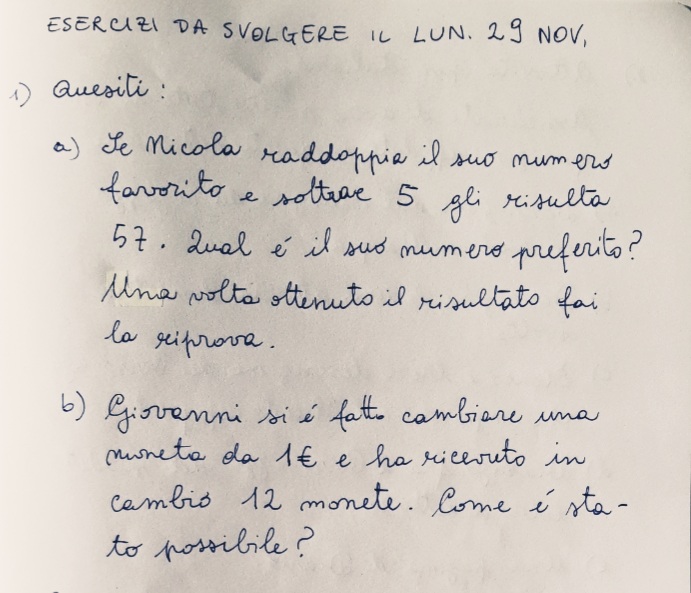 ESERCIZI DA SVOLGERE IL LUN. 29 NOV.
1) Quesiti :
a) Se Nicola raddoppia il suo numero
favorito e sottrae 5 gli risulta
57. Qual é il suo numero preferito?
Una volta ottenuto il risultato fai
la riprova.
b) Giovanni si é fatto cambiare una
moneta da 1€ e ha ricevuto in
cambio 12 monete. Come é sta-
to possibile?